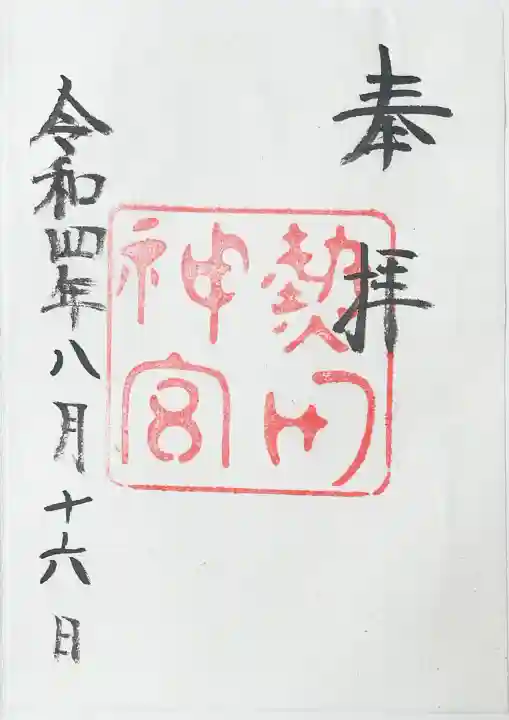 奉拝
熱田
神宮
令和四年八月十六日